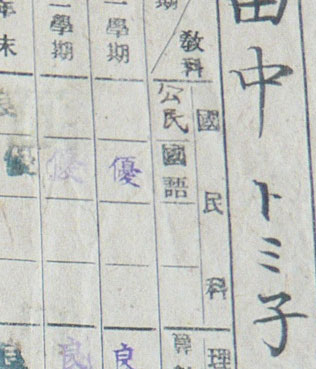 田中トミ子
國民科
教科
公民
國語
學期
優
良
學期
優
良
年末
優
良
理
算